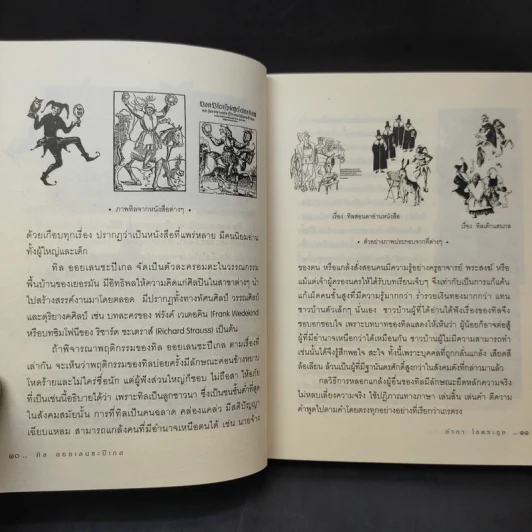 • ภาพทิลจากหนังสือต่างๆ •
ด้วยเกือบทุกเรื่อง ปรากฏว่าเป็นหนังสือที่แพร่หลาย มีคนนิยมอ่าน
ทั้งผู้ใหญ่และเด็ก
ทิล ออยเลนชะปีเกล จัดเป็นตัวละครอมตะในวรรณกรรม
พื้นบ้านของเยอรมัน มีอิทธิพลให้ความคิดแก่ศิลปินในสาขาต่างๆ นำ
ไปสร้างสรรค์งานมาโดยตลอด มีปรากฏทั้งทางทัศนศิลป์ วรรณศิลป์
และดุริยางคศิลป์ เช่น บทละครของ ฟรังค์ เวเดอคินด์ (Frank Wedekind)
หรือบทซิมโฟนีของ ริชาร์ด ชะเตราส์ (Richard Strauss) เป็นต้น
ถ้าพิจารณาพฤติกรรมของทิล ออยเลนชะปีเกล ตามเรื่องที่
เล่ากัน จะเห็นว่าพฤติกรรมของทิลบ่อยครั้งมีลักษณะค่อนข้างหยาบ
โหดร้ายและไม่ใคร่ซื่อนัก แต่ผู้ฟังส่วนใหญ่ก็ชอบ ไม่ถือสา ให้อภัย
ที่เป็นเช่นนี้อธิบายได้ว่า เพราะทิลเป็นลูกชาวนา ซึ่งเป็นชนชั้นต่ำที่สุด
ในสังคมสมัยนั้น การที่ทิลเป็นคนฉลาด คล่องแคล่ว มีสติปัญญา
เฉียบแหลม สามารถแกล้งคนที่มีอำนาจเหนือตนได้ เช่น นายจ้าง
๑๐ .. ทิล ออยเลนชะปีเกล
เรื่อง ทิลสอนลาอ่านหนังสือ
เรื่อง ทิลเด็กแสนกล
• ตัวอย่างภาพประกอบจากที่ต่างๆ •
ของตน หรือแกล้งสั่งสอนคนมีความรู้อย่างครูอาจารย์ พระสงฆ์ หรือ
แม้แต่เจ้าผู้ครองนครให้ได้รับบทเรียนเจ็บๆ จึงเท่ากับเป็นการแก้แค้น
แก้เผ็ดคนชั้นสูงที่มีความรู้มากกว่า ร่ำรวยเงินทองมากกว่า แทน
ชาวบ้านตัวเล็กๆ นั่นเอง ชาวบ้านผู้ที่ได้อ่านได้ฟังเรื่องของทิลจึง
ชอบอกชอบใจ เพราะบทบาทของทิลแสดงให้เห็นว่า ผู้น้อยก็อาจต่อสู้
ผู้ที่มีอำนาจเหนือกว่าได้เหมือนกัน ชาวบ้านผู้ซึ่งไม่มีความสามารถทำ
เช่นนั้นได้จึงรู้สึกพอใจ สะใจ ทั้งนี้เพราะบุคคลที่ถูกกลั่นแกล้ง เสียดสี
ล้อเลียน ล้วนเป็นผู้ที่มีฐานันดรศักดิ์สูงกว่าในสังคมดังที่กล่าวมาแล้ว
กลวิธีการหลอกแกล้งผู้อื่นของทิลมีลักษณะยึดหลักความจริง
ไม่หลบเลี่ยงความจริง ใช้ปฏิภาณทางภาษา เล่นลิ้น เล่นคำ ตีความ
คำพูดไปตามคำโดยตรงทุกอย่างอย่างที่เรียกว่าเถรตรง